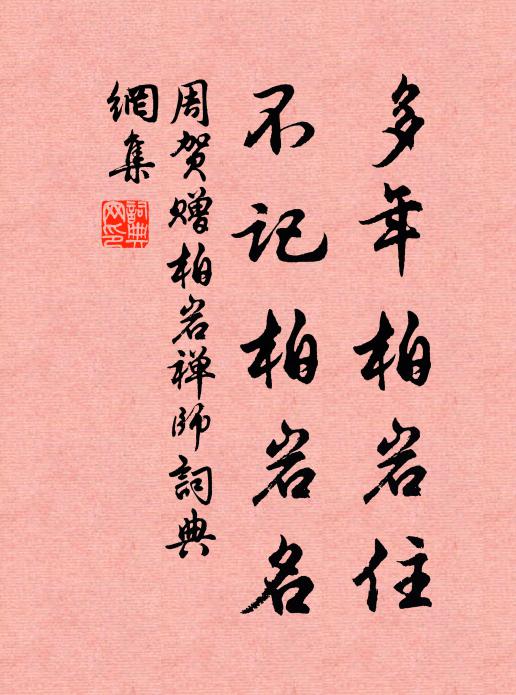 多年柏岩住
不记柏岩名
周贺赠柏岩禅师詞典
網集
詞典
网印